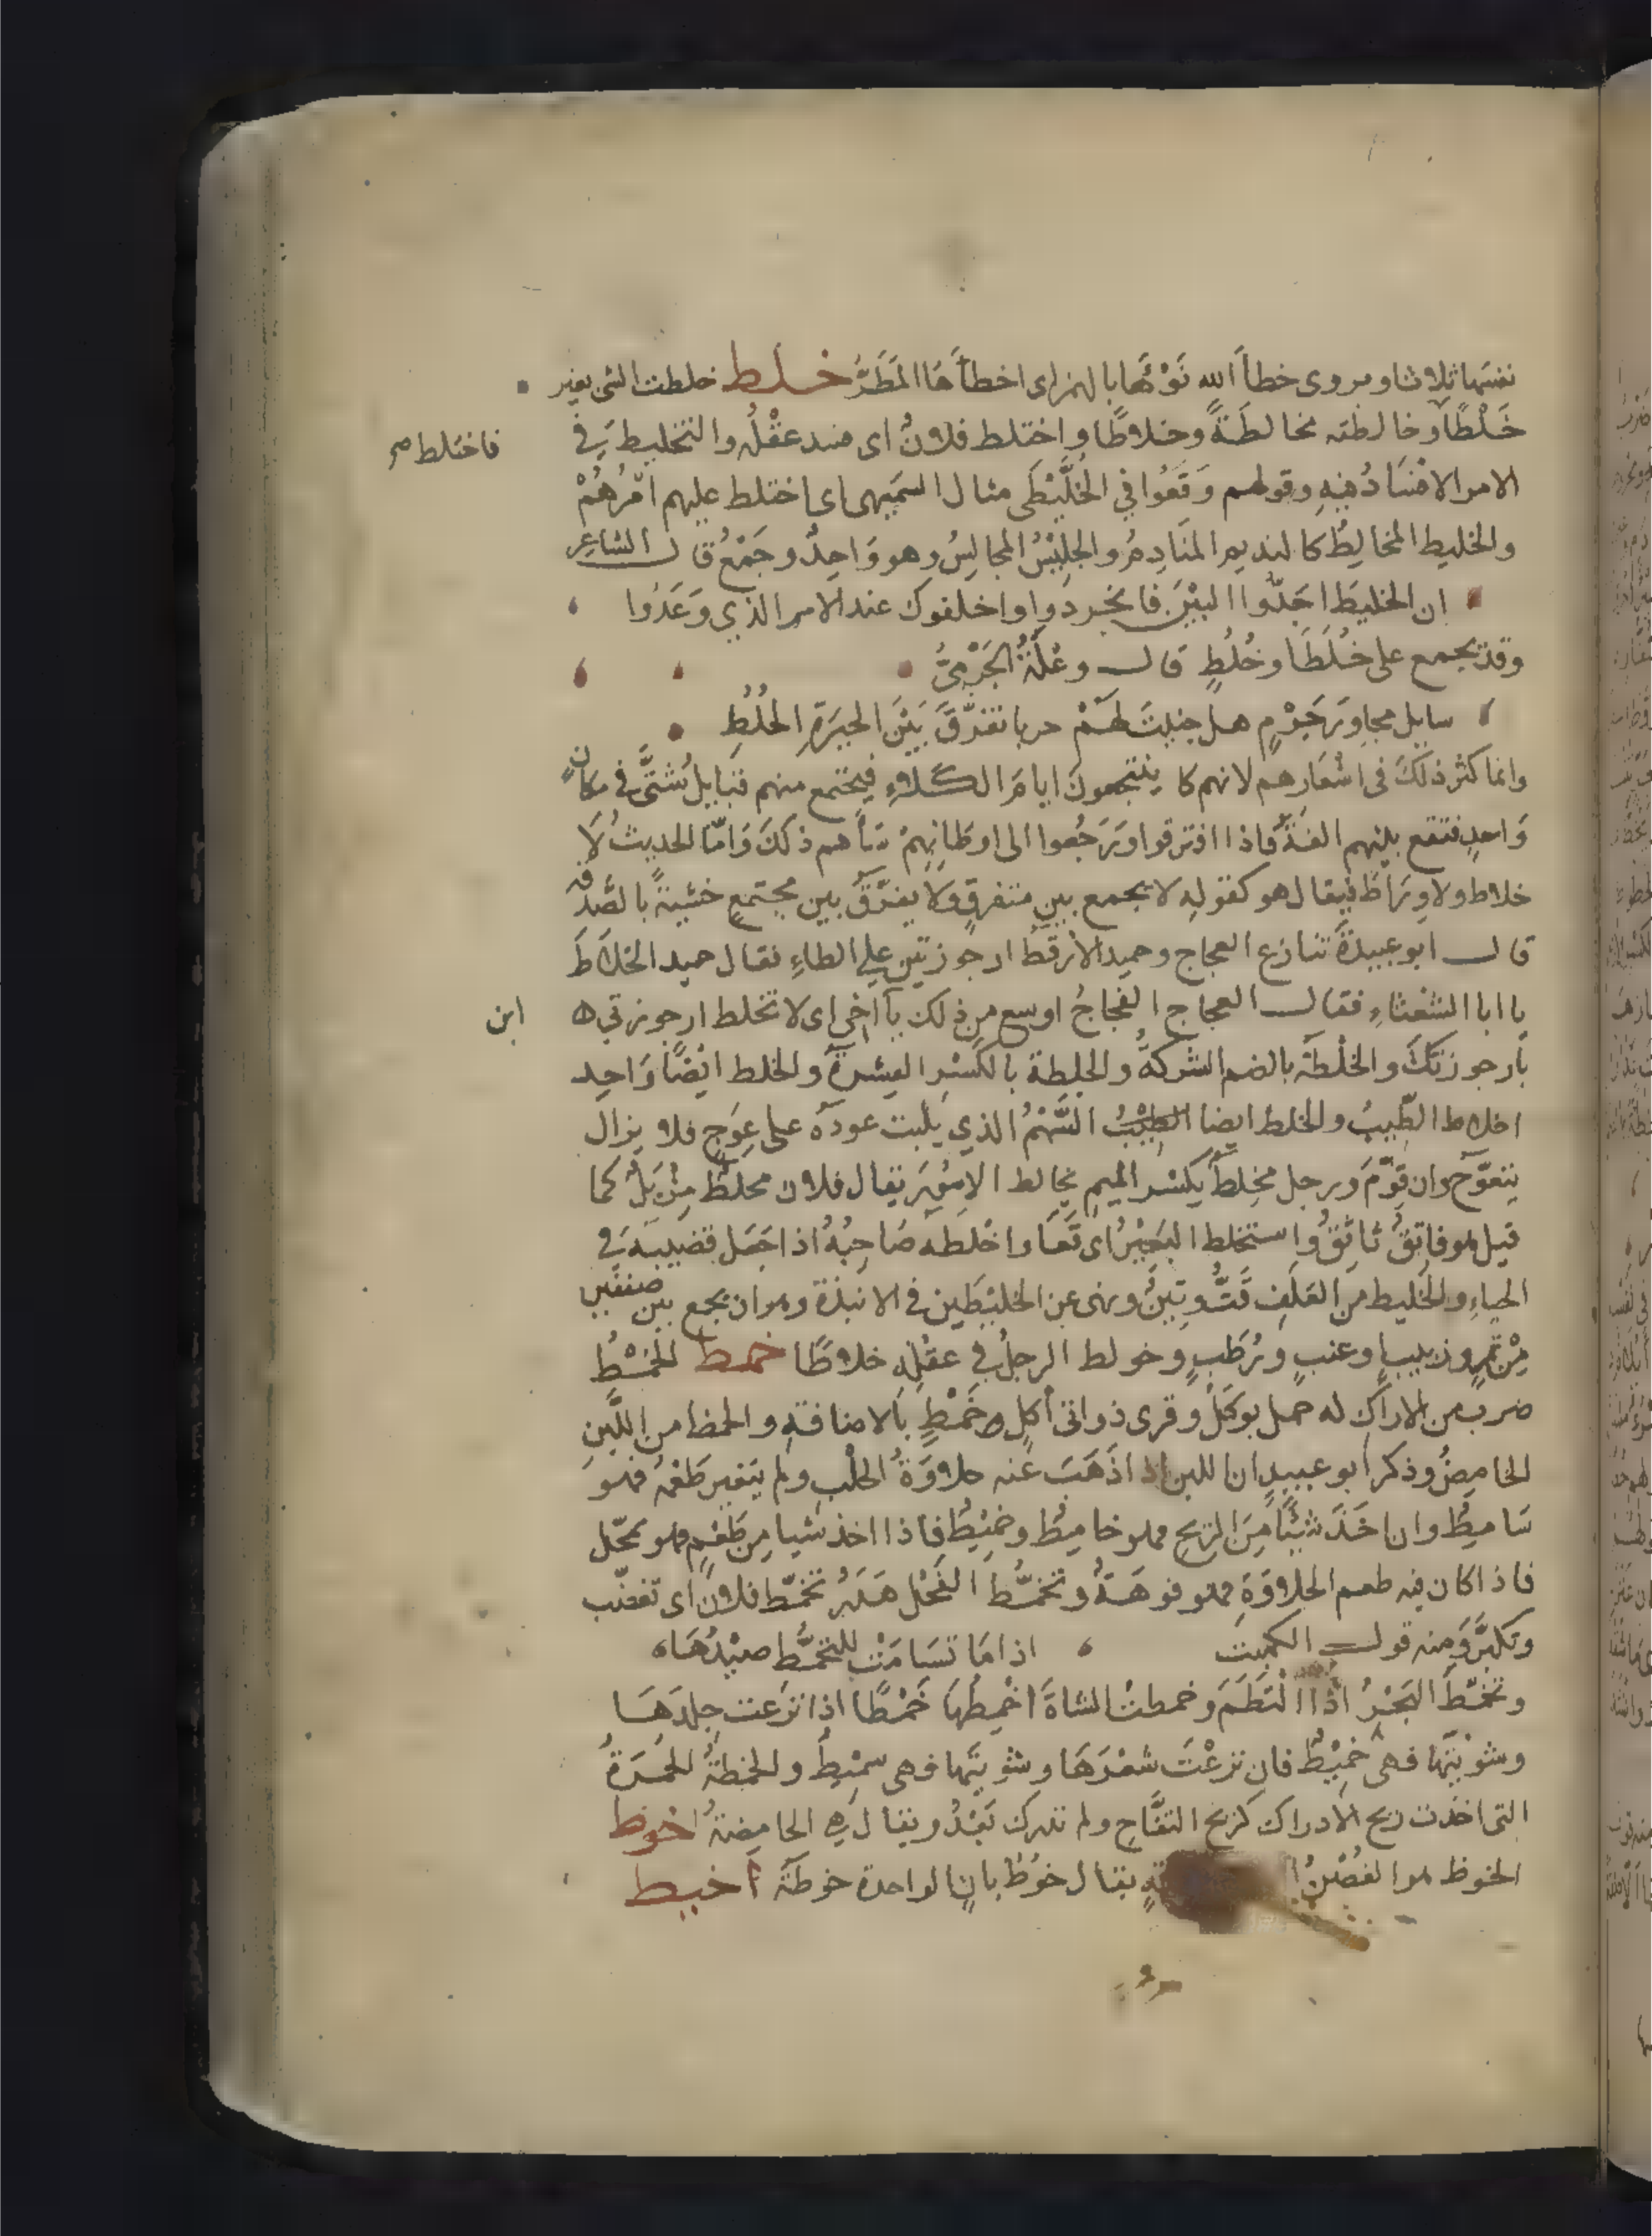 نفسها ثلاثا ومروى خطأ الله نوْءَها بالهمز اى اخطأها المَطَرُ خلط خلطت الشى بغير
خَلْطًا وخالطته مخالطَةً وخلاطًا واختلط فلانٌ اى فسد عقْلُه والتخليط في
فاختلط صح
الامر الافسَادُ فيهِ وقولهم وَقَعُوا في الخُلَّيْطَى مثال السميهى اى اختلط عليهم امْرُهُمْ
والخليط المخالِطُ كالنديم المنَادِمُ والجلِيْسُ المجالِسُ وهو وَاحِدٌ وجَمْعٌ قال الشاعِر
ان الخليطَ اجَدّوا البيْنَ فانجردوا واخلفوك عند الامر الذي وَعَدُوا
وقد يجمع على خُلَطَا وخُلُطٍ قال وعْلَةُ الجَرْمِىُّ
سايل مجاوِرَ جَرْمٍ هل جنيتَ لهَمْ حربا تفَرّقَ بَيْنَ الجيرَةِ الخُلُطِ
وانما كثر ذلكَ فى اشْعَارِهم لانهم كا ينتجعونَ ايامَ الكَلاءِ فيجتمع منهم قبايل شتَّى في مكانٍ
وَاحدٍ فتقع بينهم الفَةٌ فاذا افترقوا ورَجَعوا الى اوطانِهِمْ سَأهم ذلكَ وَامّا الحديثُ لَا
خلاط ولا وِرَاط فيقال هو كقولهِ لا يجمع بين متفرقٍ ولَا يفَرّقُ بين مجتمعٍ خشيةً بالصَّدقه
قال ابو عبيدَةَ تنازع العجاج وحميد الأرقطُ ارجوزتين على الطاءِ فقال حميد الخلَاطَ
يا ابا الشعْثاءِ فقال العجاج الفجاجُ اوسع من ذلك يآ اخى اى لا تخلط ارجوزتي ه
ابن
بأرجوزتكَ والخلْطَة بالضم الشركةُ والخِلطة بالكَسْرِ العِشرةُ والخلط ايْضًا وَاحِد
اخلاط الطّيبُ والخلط ايضا السَّهْمُ الذي ينبت عودهُ على عِوَجٍ فلا يزال
يتعوّج وان قوّمَ ورجل مِخلطٌ بكسْر الميمِ يخالط الامُورَ يقال فلان مخلطٌ مِزْيَلٌ كما
قيل هو فاتِقٌ ثاتِقٌ واستخلط البَعِيْرُ اى قَعَا واخْلطه صَاحِبُهُ اذا جَعَل قضيبَه في
الحياءِ والخَليط من العَلَفِ قَتٌّ وتِبْنٌ ونهى عن الخليْطَين في الانبذة وهو ان يجمع بين صنفين
مِنْ تمرٍ وزبيبٍ وعنبٍ ورُطَبٍ وخولط الرجلُ في عقلِه خلاطًا خمط الخمْطُ
ضرب من الاراكِ له حمل يوكَلُ وقرى ذواتى أكلِ خَمْطٍ بالاضافَةِ والخمط من اللَّبَنِ
الحامِضُ وذكر ابو عبيدٍ ان اللبن اذا ذَهَبَ عَنه حلاوَةُ الحلْبِ ولم يتغير طَعْمُه فهو
سَامِطٌ وان اخَذَ شيْئًا مِنَ الريحِ فهو خامِطٌ وخمِيْطٌ فاذا اخذ شيا مِن طَعْمٍ فهو ممحّل
فاذا كان فيه طعم الحلاوَةِ فهو فوهَةٌ وتخمُّط الفَحْل هَدَرُ تخمّط فلانٌ اى تغضّب
وتكبَّرَ ومنه قول الكميت ، اذا مَا تسَامَتْ للتخمُّط صيْدُهَا ه
وتخمّطَ البَحْرُ اذَا الْتَطَمَ وخمطتُ الشاةَ اخْمِطُهَا خَمْطًا اذا نزعت جِلدَهَا
وشوَيْتَها فهى خمِيْطٌ فان نزعْتَ شعْرَهَا وشويْتَها فهى سمْيِطٌ والخمطَةُ الخَمرَةُ
التى اخذت ريح الادراك كريح التفَّاحِ ولم تدرك بَعْدُ ويقال هي الحامِضةُ خوط
الخوط هو الغُصْنُ يقال خوُطُ بانٍ الواحدة خوطَةٌ خبط